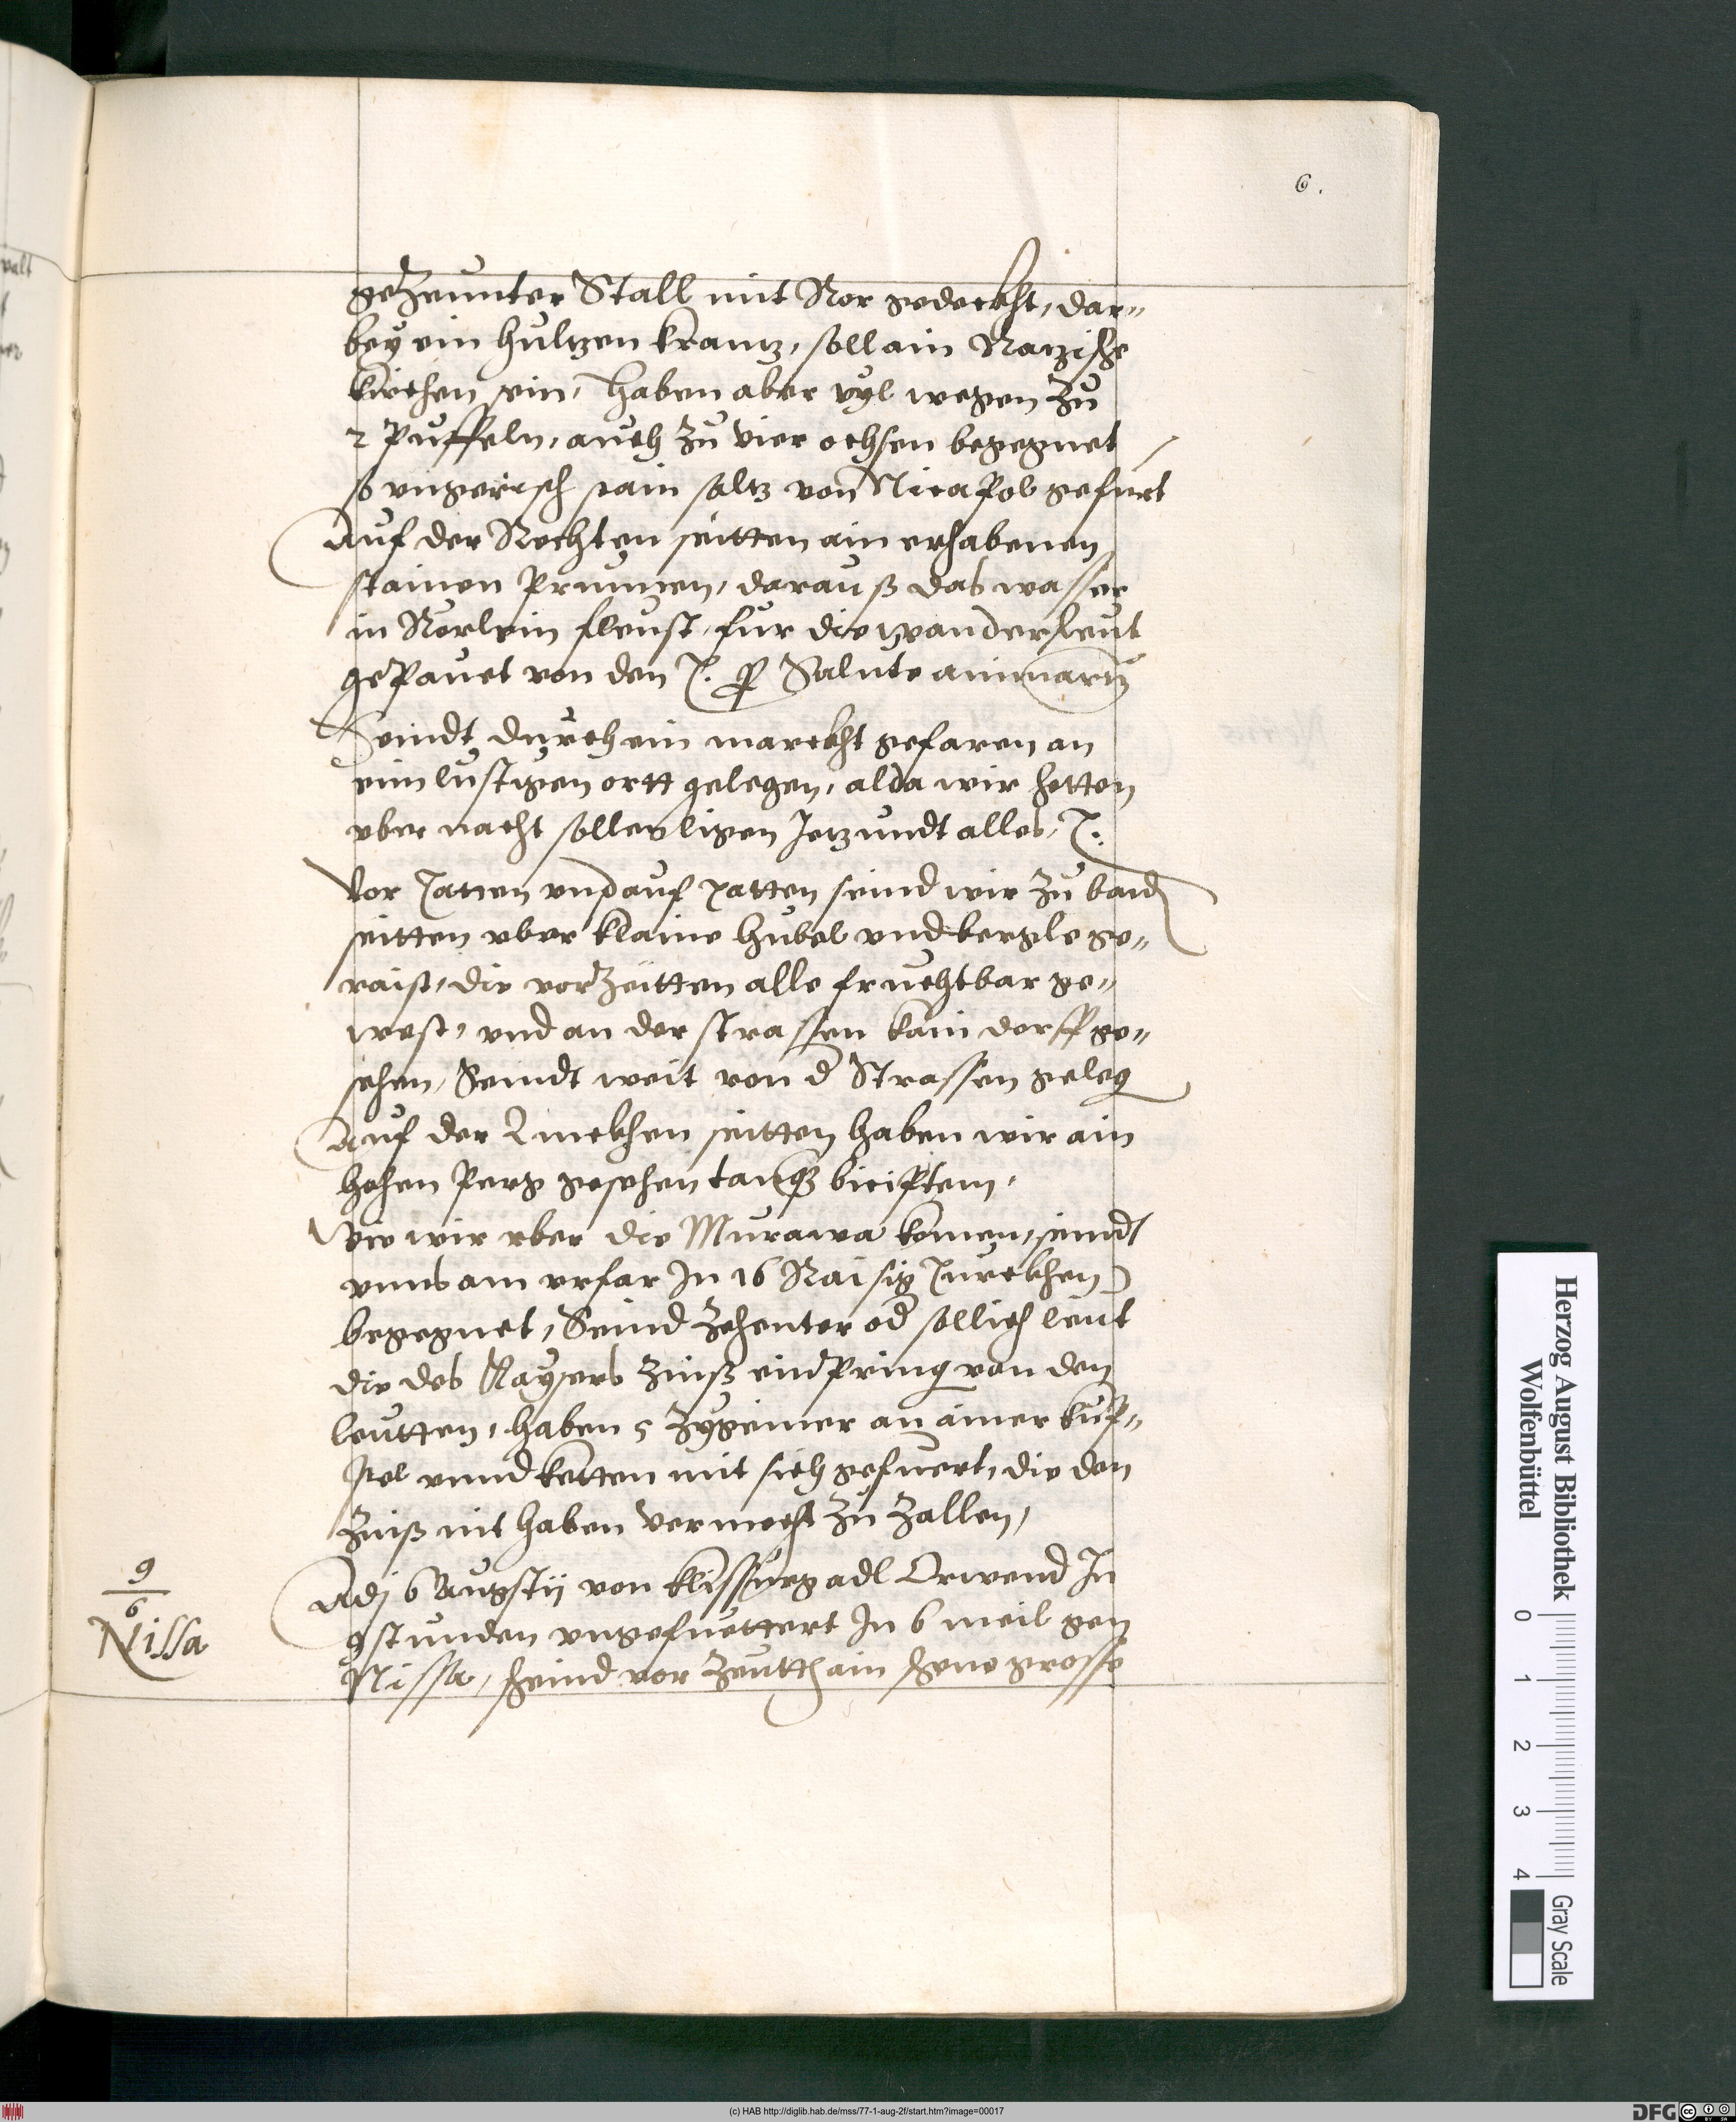 6.
gezeunter Stall mit Ror gedeckht, dar„
bey ein hultzen krantz, soll ain Ratzische
kirchen sein, haben aber vyl wegen zu
2 Puffeln, auch zu vier ochsen begegnet
so vngerisch stain saltz von Nicapol gefurt
Auf der Rechten seitten ain erhabenen
stainen Prunnen, darauß das wasser
in Rorlein fleust, fur die wanderleut
gePauet von den T. ꝓ Salute animarū
Seindt durch ein marckht gefaren an
eim lustigen ortt gelegen, alda wir hetten
vber nacht sollen ligen Jetzundt alles T.
Vor Jatten vnd auf Jatten seind wir zu baid
seitten vber klaine hubel vnd bergle ge„
raist, die vorzeitten alle fruchtbar ge„
west, vnd an der strassen kain dorff ge„
sehen, Seindt weit von d Strassen geleg
Auf der Linckhen seitten haben wir ain
hohen Perg gesehen tanq bicipitem,
Wie wir vber die Murawa komen, seindt
vnns am vrfar In 16 Raisig Turckhen
begegnet, Seind zehenter od sollich leut
die des Kaysers zinß einPring von den
leutten, haben 5 zygeiner an ainer kup„
pel vnnd ketten mit sich gefuert, die den
zinß nit haben vermecht zu zallen,
Adj 6 Augstij von klissurg adl Orwend In
9 stunden vngefuettert In 6 meil gen
Nissa, seind vor zeutt ain schene grosse
9
6
Nissa
Herzog August Bibliothek
Wolfenbüttel
0 1 2 3 4
Gray Scale
(c) HAB http://diglib.hab.de/mss/77-1-aug-2f/start.htm?image=00017
DFG